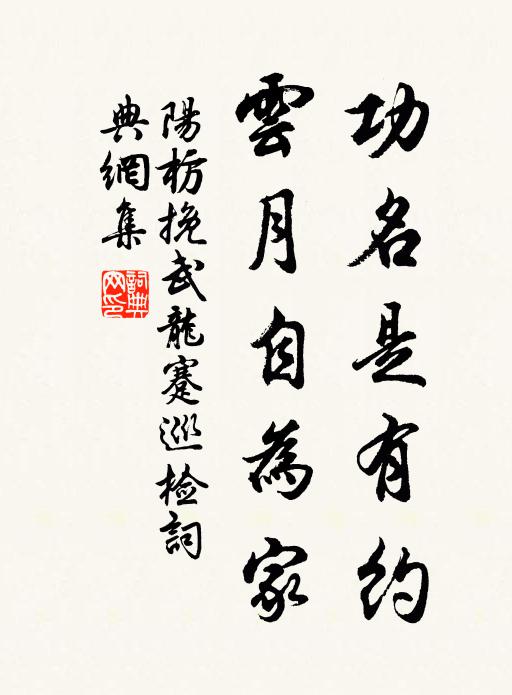 功名是有約
雲月自為家
陽枋挽武龍蹇巡檢詞
典網集
詞典
网印